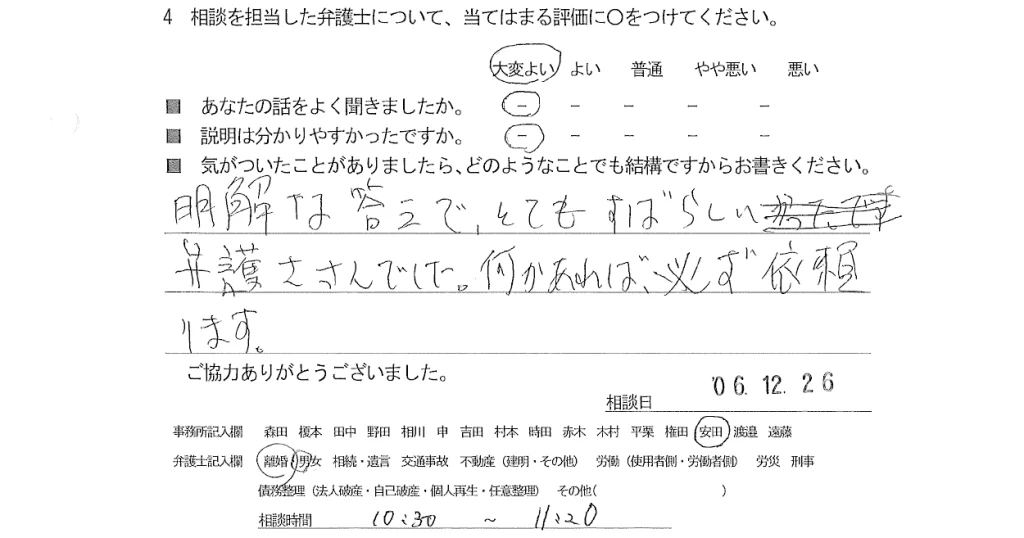 4 相談を担当した弁護士について、当てはまる評価に〇をつけてください。
大変よい よい 普通 やや悪い 悪い
■ あなたの話をよく聞きましたか。 － － － － －
■ 説明は分かりやすかったですか。 － － － － －
■ 気がついたことがありましたら、どのようなことでも結構ですからお書きください。
明解な答えで、とてもすばらしい
弁護士さんでした。何かあれば、必ず依頼
します。
ご協力ありがとうございました。
相談日 '06.12.26
事務所記入欄 森田 榎本 田中 野田 相川 申 吉田 村本 時田 赤木 木村 平栗 権田 安田 渡邉 遠藤
弁護士記入欄 離婚（男女 相続・遺言 交通事故 不動産（建明・その他） 労働（使用者側・労働者側） 労災 刑事
債務整理（法人破産・自己破産・個人再生・任意整理） その他（ ）
相談時間 10:30 ～ 11:20